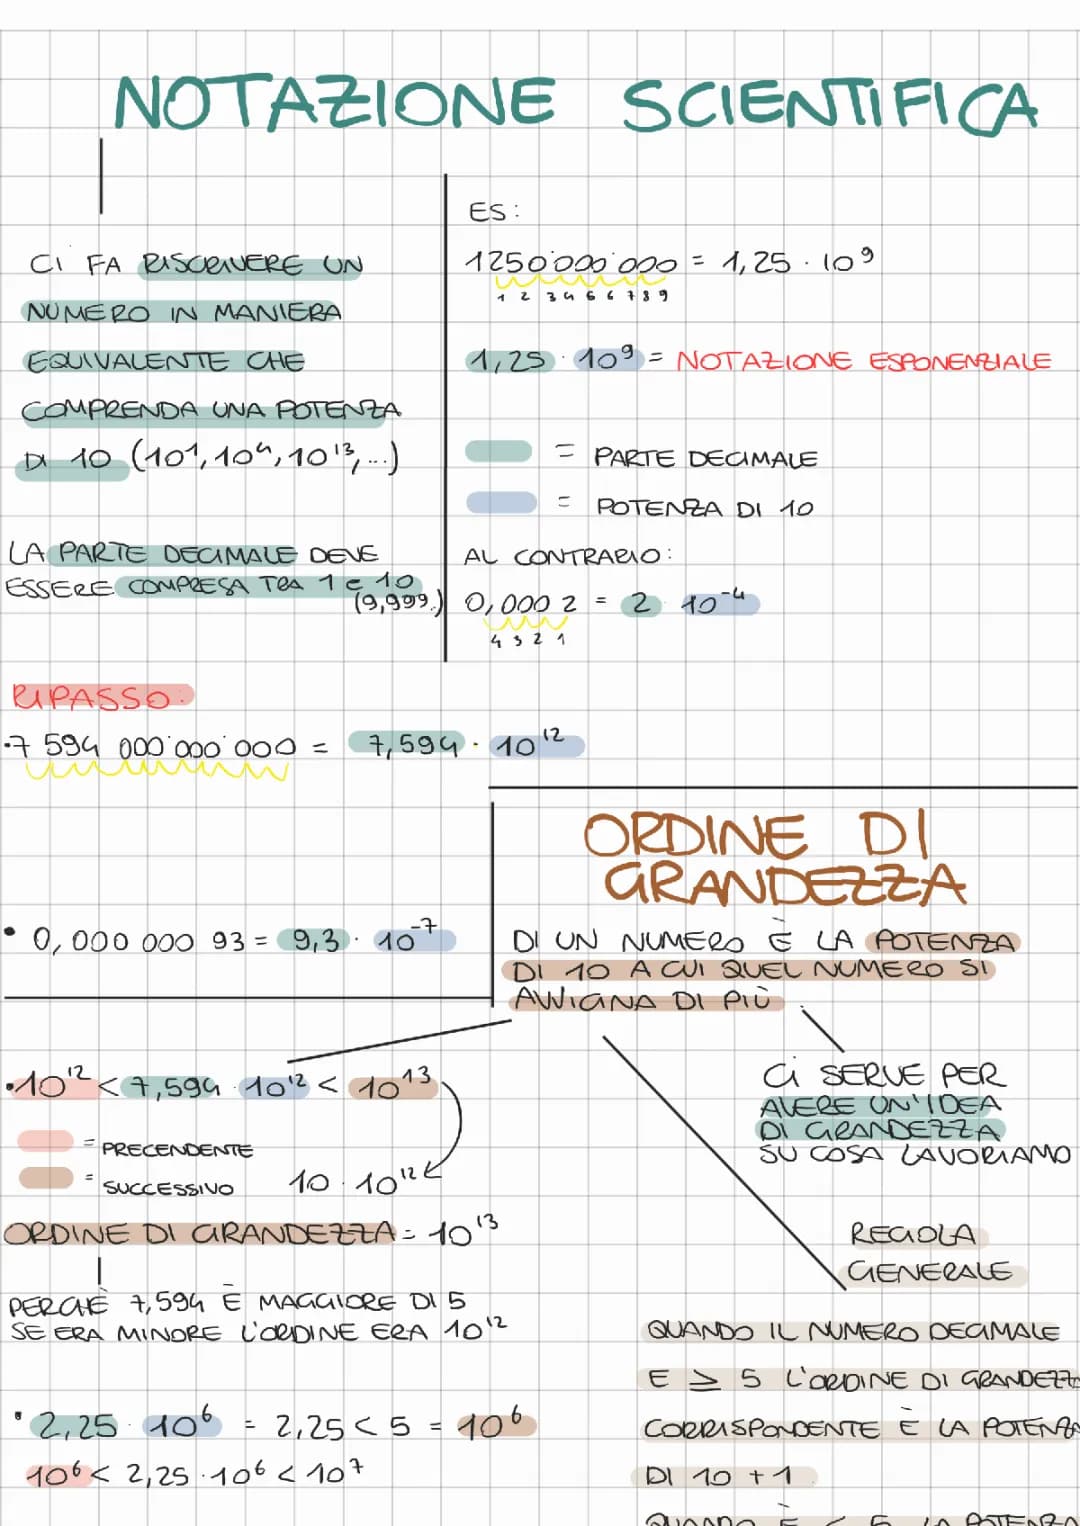 NOTAZIONE SCIENTIFICA
CI FA RISCRIVERE UN
NUMERO IN MANIERA
EQUIVALENTE CHE
COMPRENDA UNA POTENZA
DI 10 (10¹, 10⁴, 10¹³, ...)
LA PARTE DECIMALE DEVE
ESSERE COMPRESA TRA 1 e 10
(9,999..)
ES:
1250'000'000 = 1,25 · 10⁹
1 2 3 4 5 6 7 8 9
1,25 · 10⁹ = NOTAZIONE ESPONENZIALE
= PARTE DECIMALE
= POTENZA DI 10
AL CONTRARIO:
0,000 2 = 2 10⁻⁴
4 3 2 1
RIPASSO:
·7 594 000'000'000 = 7,594 · 10¹²
• 0,000 000 93 = 9,3 · 10⁻⁷
ORDINE DI
GRANDEZZA
DI UN NUMERO È LA POTENZA
DI 10 A CUI QUEL NUMERO SI
AVVICINA DI PIÙ
CI SERVE PER
AVERE UN'IDEA
DI GRANDEZZA
SU COSA LAVORIAMO
•10¹² < 7,594 · 10¹² < 10¹³
= PRECENDENTE
= SUCCESSIVO 10 · 10¹²
ORDINE DI GRANDEZZA = 10¹³
PERCHÈ 7,594 È MAGGIORE DI 5
SE ERA MINORE L'ORDINE ERA 10¹²
• 2,25 · 10⁶ = 2,25 < 5 = 10⁶
10⁶ < 2,25 · 10⁶ < 10⁷
REGOLA
GENERALE
QUANDO IL NUMERO DECIMALE
E ≥ 5 L'ORDINE DI GRANDEZZ
CORRISPONDENTE È LA POTENZA
DI 10 + 1
QUANDO È < 5 LA POTENZA